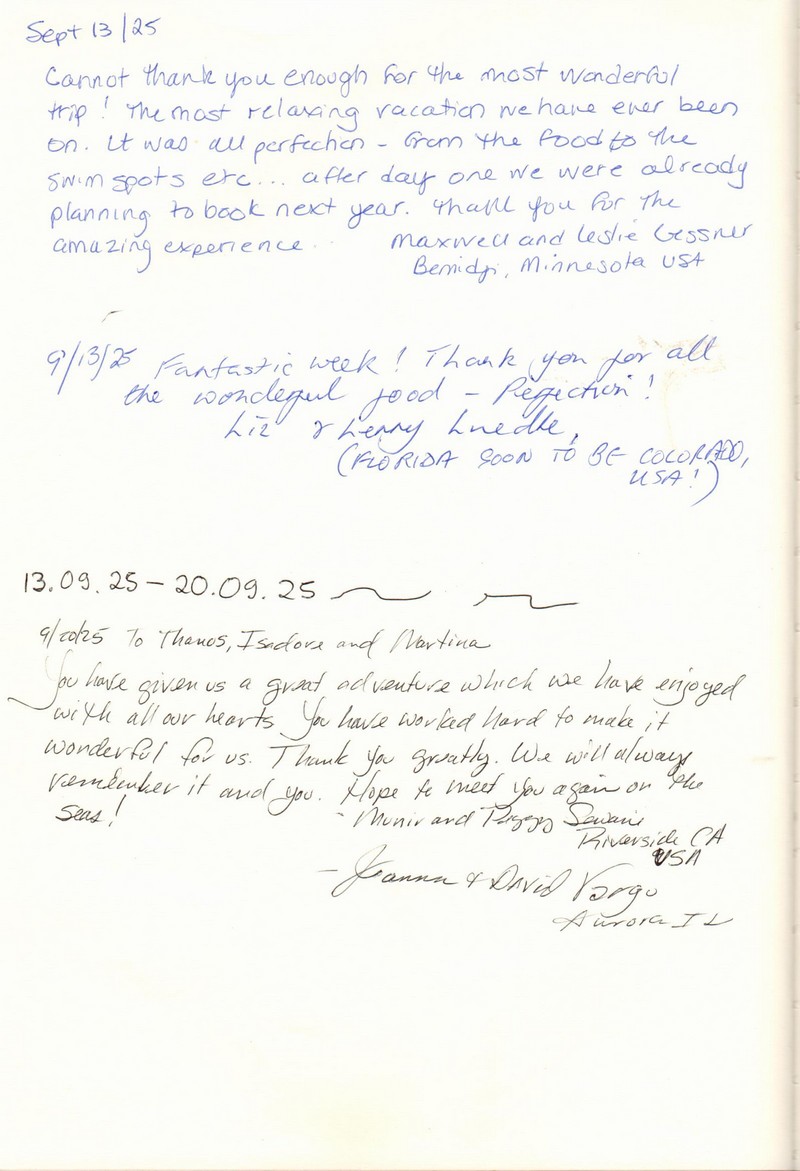 Sept 13/25
Cannot thank you enough for the most wonderful
trip! The most relaxing vacation we have ever been
on. It was all perfection - from the food to the
swim spots etc... after day one we were already
planning to book next year. Thank you for the
amazing experience.
Maxwell and Leslie Gessner
Bemidji, Minnesota USA
9/13/25 Fantastic week! Thank you for all
the wonderful food - Perfection!
Liz & Lenny
(FLORIDA SOON TO BE COLORADO,
USA!)
13.09.25 - 20.09.25
9/20/25 To Thanos, Isadore and Martina
You have given us a great adventure which we have enjoyed
with all our hearts You have worked hard to make it
wonderful for us. Thank you greatly. We will always
remember it and you. Hope to meet you again on the
seas!
- Munir and Peggy
Riverside CA
USA
- Jeanna & David Vargo
Aurora IL